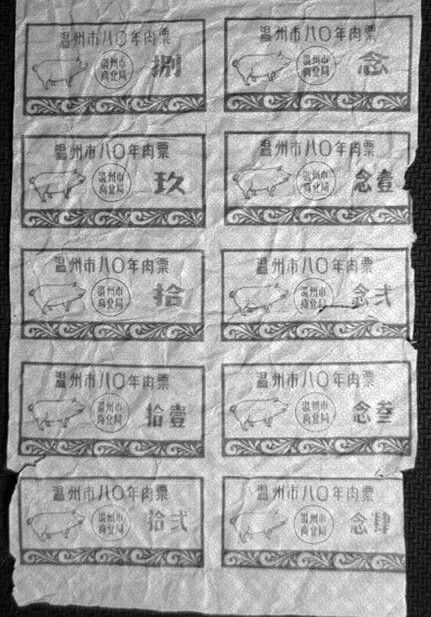 温州市八〇年肉票
温州市
商业局
捌
温州市八〇年肉票
温州市
商业局
念
温州市八〇年肉票
温州市
商业局
玖
温州市八〇年肉票
温州市
商业局
念壹
温州市八〇年肉票
温州市
商业局
拾
温州市八〇年肉票
温州市
商业局
念弍
温州市八〇年肉票
温州市
商业局
拾壹
温州市八〇年肉票
温州市
商业局
念叁
温州市八〇年肉票
温州市
商业局
拾弍
温州市八〇年肉票
温州市
商业局
念肆